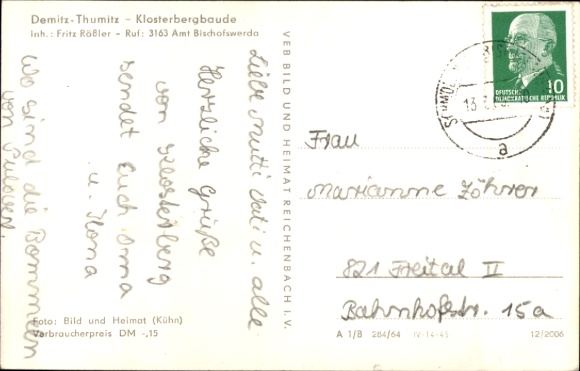 Demitz-Thumitz – Klosterbergbaude
Inh.: Fritz Rößler - Ruf: 3163 Amt Bischofswerda
Liebe Mutti Vati u. alle
Herzliche Grüße
von Klosterberg
sendet Euch Oma
u. Ilona
Wo sind die Bommeln
von
Foto: Bild und Heimat (Kühn)
Verbraucherpreis DM -,15
VEB BILD UND HEIMAT REICHENBACH I. V.
10
DEUTSCHE
DEMOKRATISCHE REPUBLIK
13.
a
Frau
Marianne Zöhrer
821 Freital II
Bahnhofstr. 15a
A 1/B 284/64 IV-14-45 12/2006